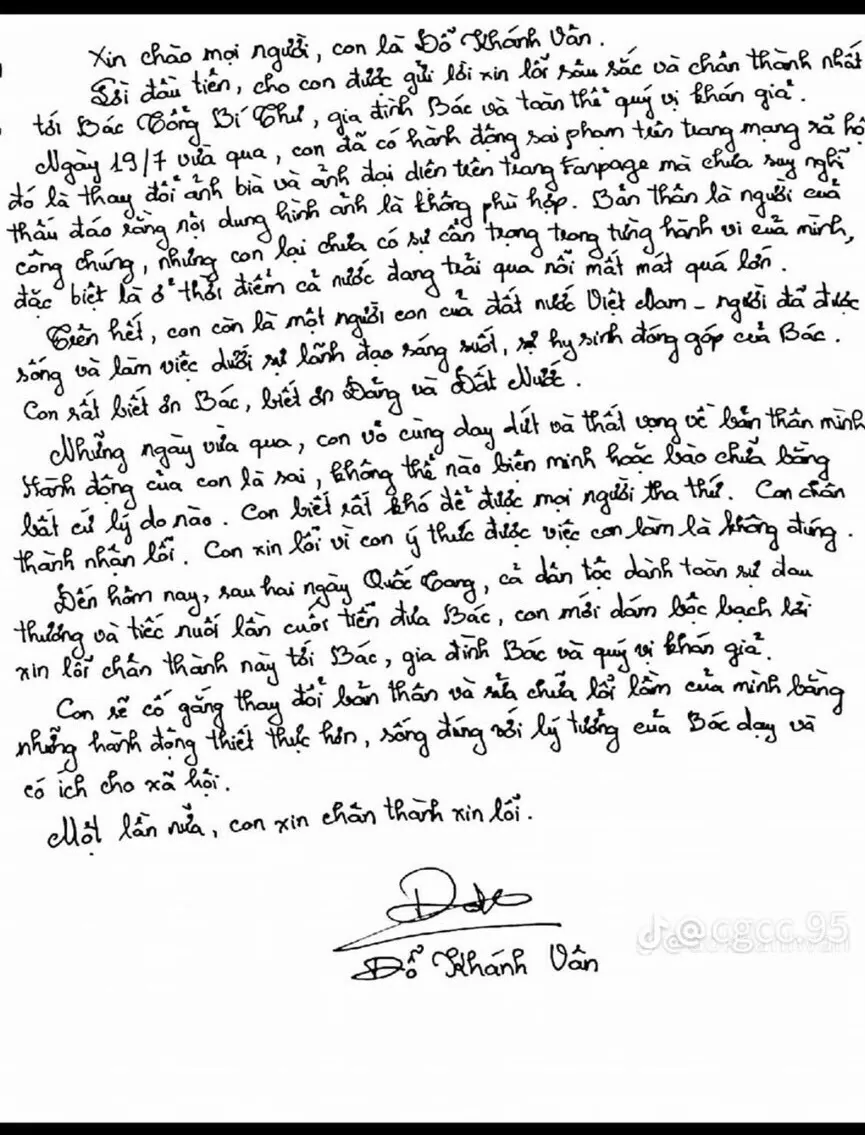 Xin chào mọi người, con là Đỗ Khánh Vân.
Lời đầu tiên, cho con được gửi lời xin lỗi sâu sắc và chân thành nhất
tới Bác Tổng Bí Thư, gia đình Bác và toàn thể quý vị khán giả.
Ngày 19/7 vừa qua, con đã có hành động sai phạm trên trang mạng xã hộ
đó là thay đổi ảnh bìa và ảnh đại diện trên trang Fanpage mà chưa suy nghĩ
thấu đáo rằng nội dung hình ảnh là không phù hợp. Bản thân là người của
công chúng, nhưng con lại chưa có sự cẩn trọng trong từng hành vi của mình,
đặc biệt là ở thời điểm cả nước đang trải qua nỗi mất mát quá lớn.
Trên hết, con còn là một người con của đất nước Việt Nam - người đã được
sống và làm việc dưới sự lãnh đạo sáng suốt, sự hy sinh đóng góp của Bác.
Con rất biết ơn Bác, biết ơn Đảng và Đất Nước.
Những ngày vừa qua, con vô cùng day dứt và thất vọng về bản thân mình
Hành động của con là sai, không thể nào biện minh hoặc bào chữa bằng
bất cứ lý do nào. Con biết rất khó để được mọi người tha thứ. Con chân
thành nhận lỗi. Con xin lỗi vì con ý thức được việc con làm là không đúng.
Đến hôm nay, sau hai ngày Quốc Tang, cả dân tộc dành toàn sự đau
thương và tiếc nuối lần cuối tiễn đưa Bác, con mới dám bộc bạch lời
xin lỗi chân thành này tới Bác, gia đình Bác và quý vị khán giả.
Con sẽ cố gắng thay đổi bản thân và sửa chữa lỗi lầm của mình bằng
những hành động thiết thực hơn, sống đúng với lý tưởng của Bác dạy và
có ích cho xã hội.
Một lần nữa, con xin chân thành xin lỗi.
Đỗ Khánh Vân
@cgcc.95